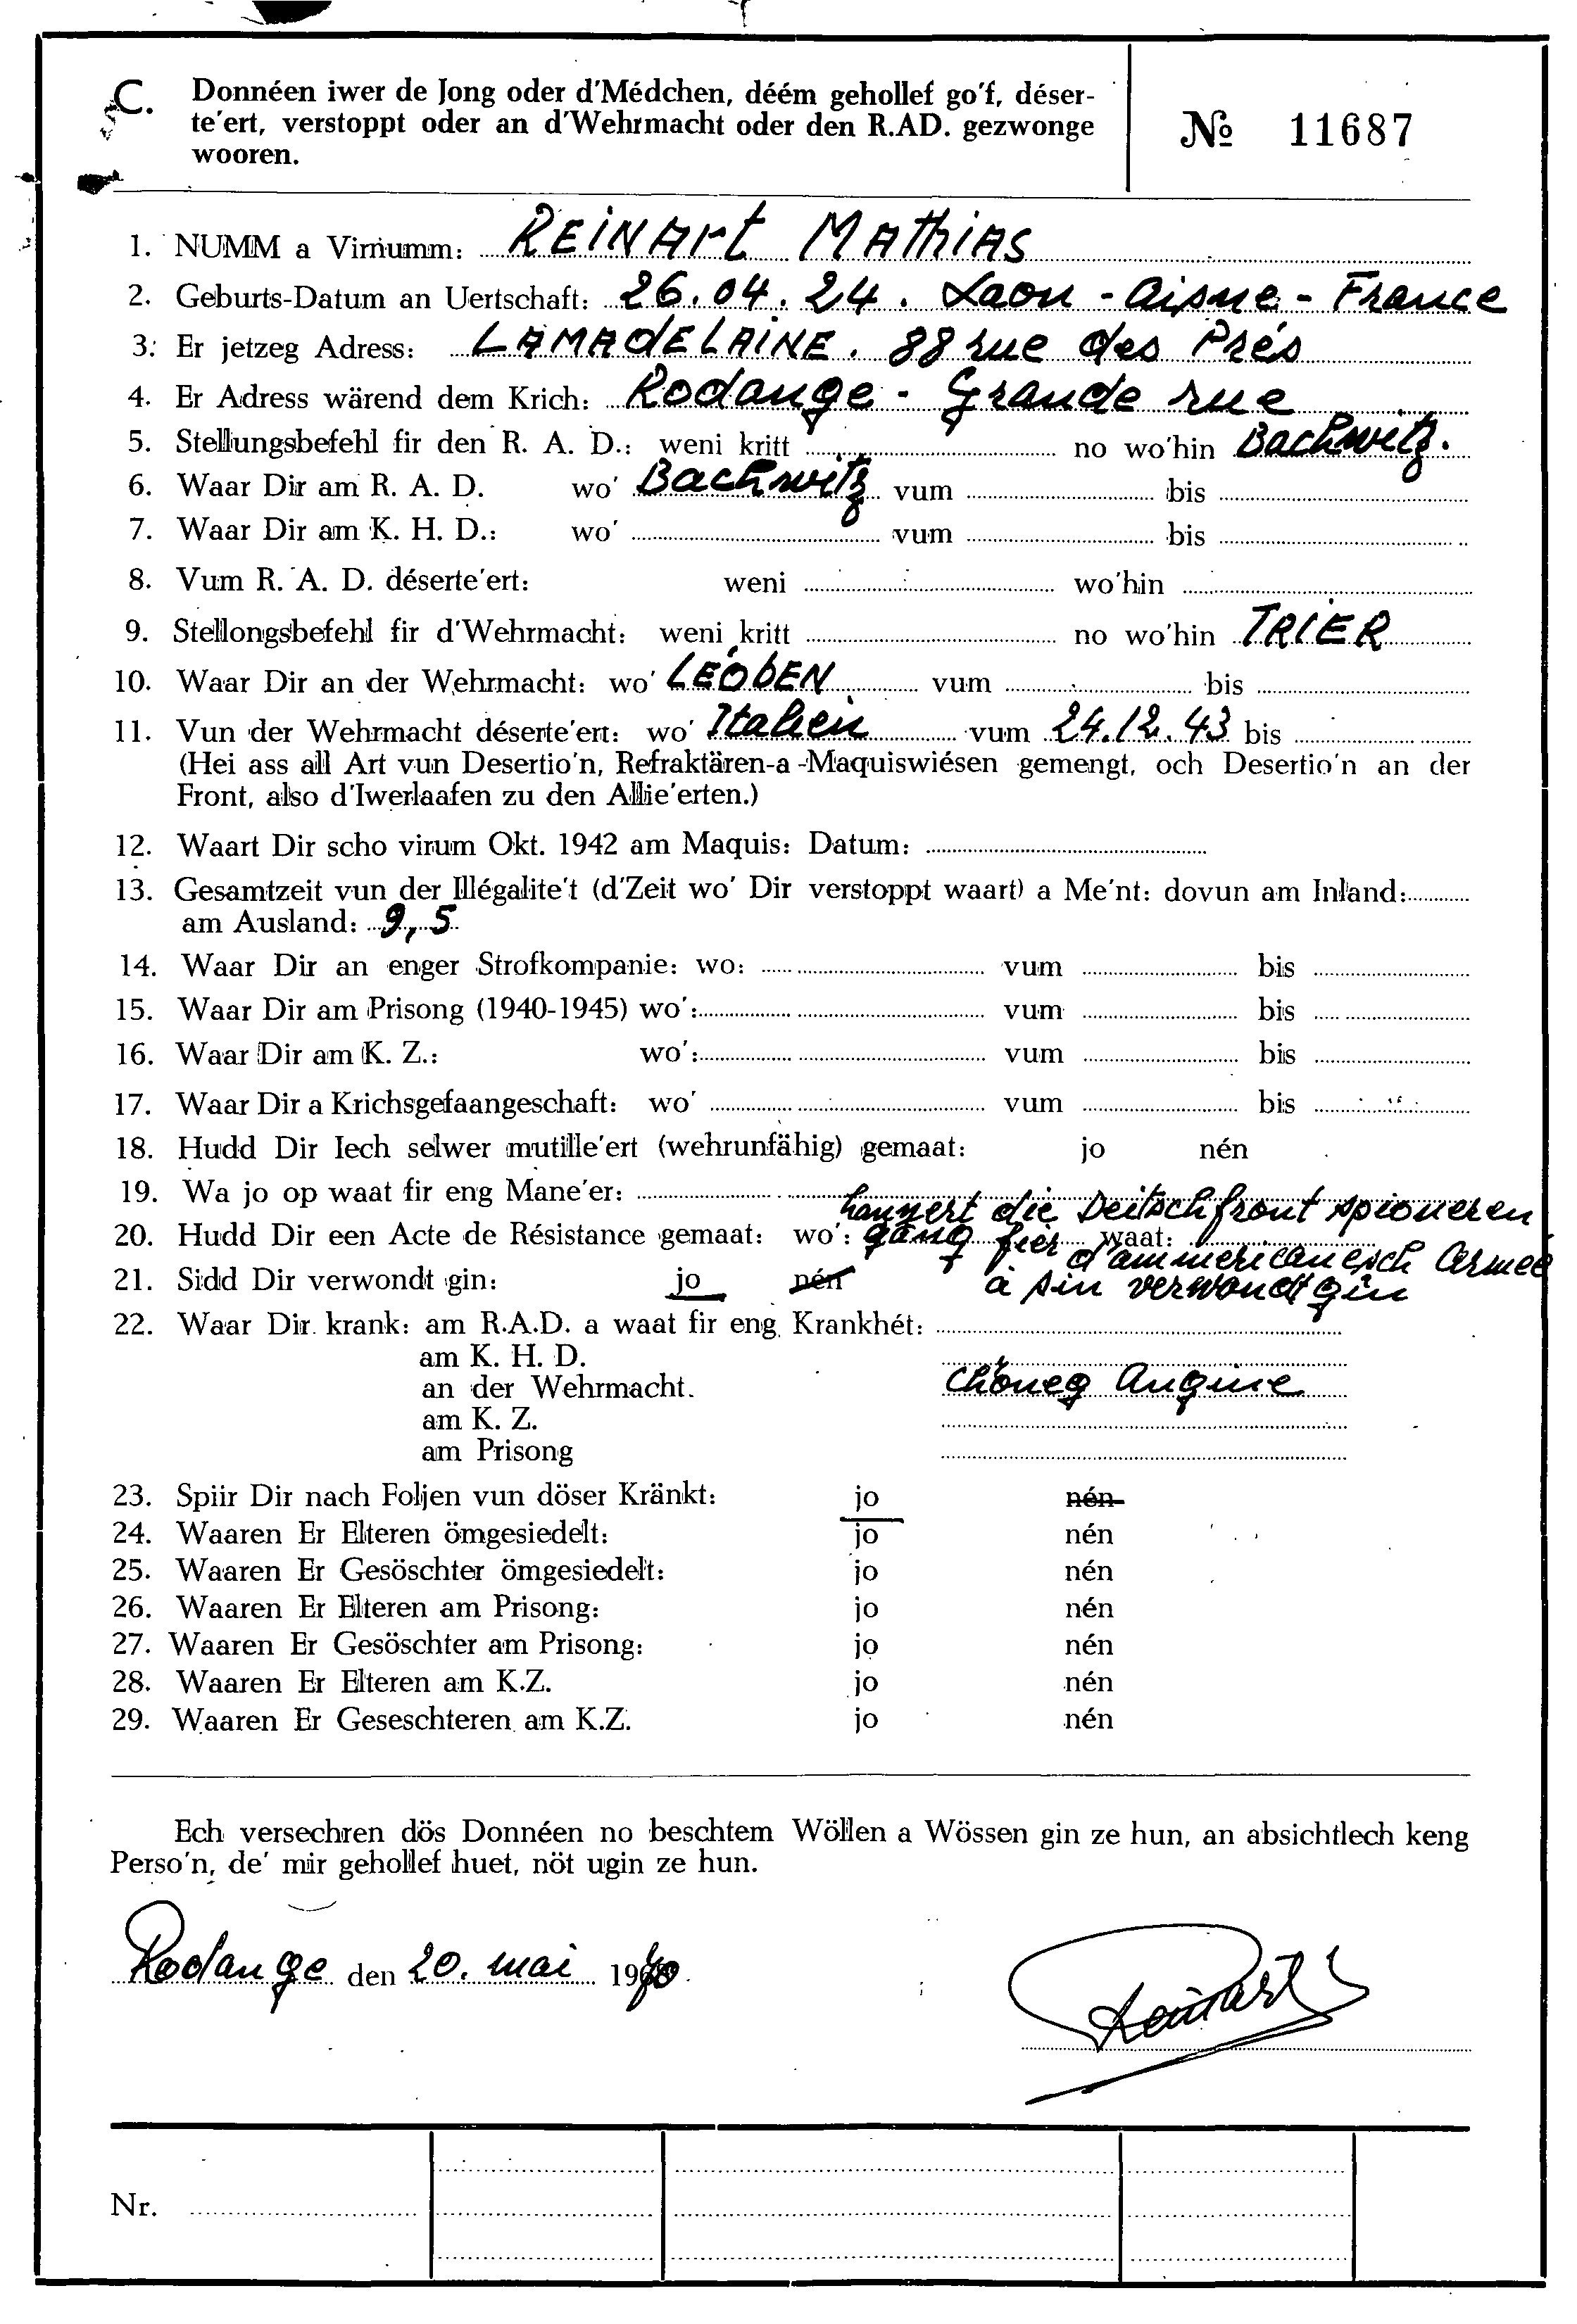 C. Donnéen iwer de Jong oder d'Médchen, déém gehollef go'f, déser-
te'ert, verstoppt oder an d'Wehrmacht oder den R.AD. gezwonge
wooren.
№ 11687
1. NUMM a Virnumm: REINArt MAthiAS
2. Geburts-Datum an Uertschaft: 26.04.24. Laon - Aisne - France
3. Er jetzeg Adress: LAMAdELAiNE. 88 rue des Prés
4. Er Adress wärend dem Krich: Rodange - Grande rue
5. Stellungsbefehl fir den R. A. D.: weni kritt no wo'hin Bachwitz.
6. Waar Dir am R. A. D. wo' Bachwitz vum bis
7. Waar Dir am K. H. D.: wo' vum bis
8. Vum R. A. D. déserte'ert: weni wo'hin
9. Stellongsbefehl fir d'Wehrmacht: weni kritt no wo'hin TRIER
10. Waar Dir an der Wehrmacht: wo' LEObEN vum bis
11. Vun der Wehrmacht déserte'ert: wo' Italien vum 24.12.43 bis
(Hei ass all Art vun Desertio'n, Refraktären-a-Maquiswiésen gemengt, och Desertio'n an der
Front, also d'Iwerlaafen zu den Allie'erten.)
12. Waart Dir scho virum Okt. 1942 am Maquis: Datum:
13. Gesamtzeit vun der Illégalite't (d'Zeit wo' Dir verstoppt waart) a Me'nt: dovun am Inland:
am Ausland: 9,5
14. Waar Dir an enger Strofkompanie: wo: vum bis
15. Waar Dir am Prisong (1940-1945) wo': vum bis
16. Waar Dir am K. Z.: wo': vum bis
17. Waar Dir a Krichsgefaangeschaft: wo' vum bis
18. Hudd Dir Iech selwer mutille'ert (wehrunfähig) gemaat: jo nén
19. Wa jo op waat fir eng Mane'er:
hannert die Deitsch front spioneren
20. Hudd Dir een Acte de Résistance gemaat: wo': gang fier waat: d'ammericanesch Armeé
21. Sidd Dir verwondt gin: jo nén à sin verwondt gin
22. Waar Dir krank: am R.A.D. a waat fir eng Krankhét:
am K. H. D.
an der Wehrmacht. Angine
am K. Z.
am Prisong
23. Spiir Dir nach Foljen vun döser Kränkt: jo nén
24. Waaren Er Elteren ömgesiedelt: jo nén
25. Waaren Er Gesöschter ömgesiedelt: jo nén
26. Waaren Er Elteren am Prisong: jo nén
27. Waaren Er Gesöschter am Prisong: jo nén
28. Waaren Er Elteren am K.Z. jo nén
29. Waaren Er Geseschteren am K.Z. jo nén
Ech versechren dös Donnéen no beschtem Wöllen a Wössen gin ze hun, an absichtlech keng
Perso'n, de' mir gehollef huet, nöt ugin ze hun.
Rodange den 20. mai 19
Reinart
Nr.